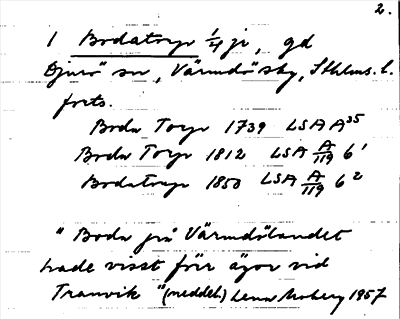 2.
1 Bodatorp 1/4 je, gd
Djurö sn, Värmdö skg, Sthlms. l.
forts.
Boda Torp 1739 LSA A35
Boda Torp 1812 LSA A/119 6¹
Bodatorp 1850 LSA A/119 6²
"Boda på Värmdölandet
hade visst förr ägor vid
Tranvik" (meddel.) Lena Moberg 1957